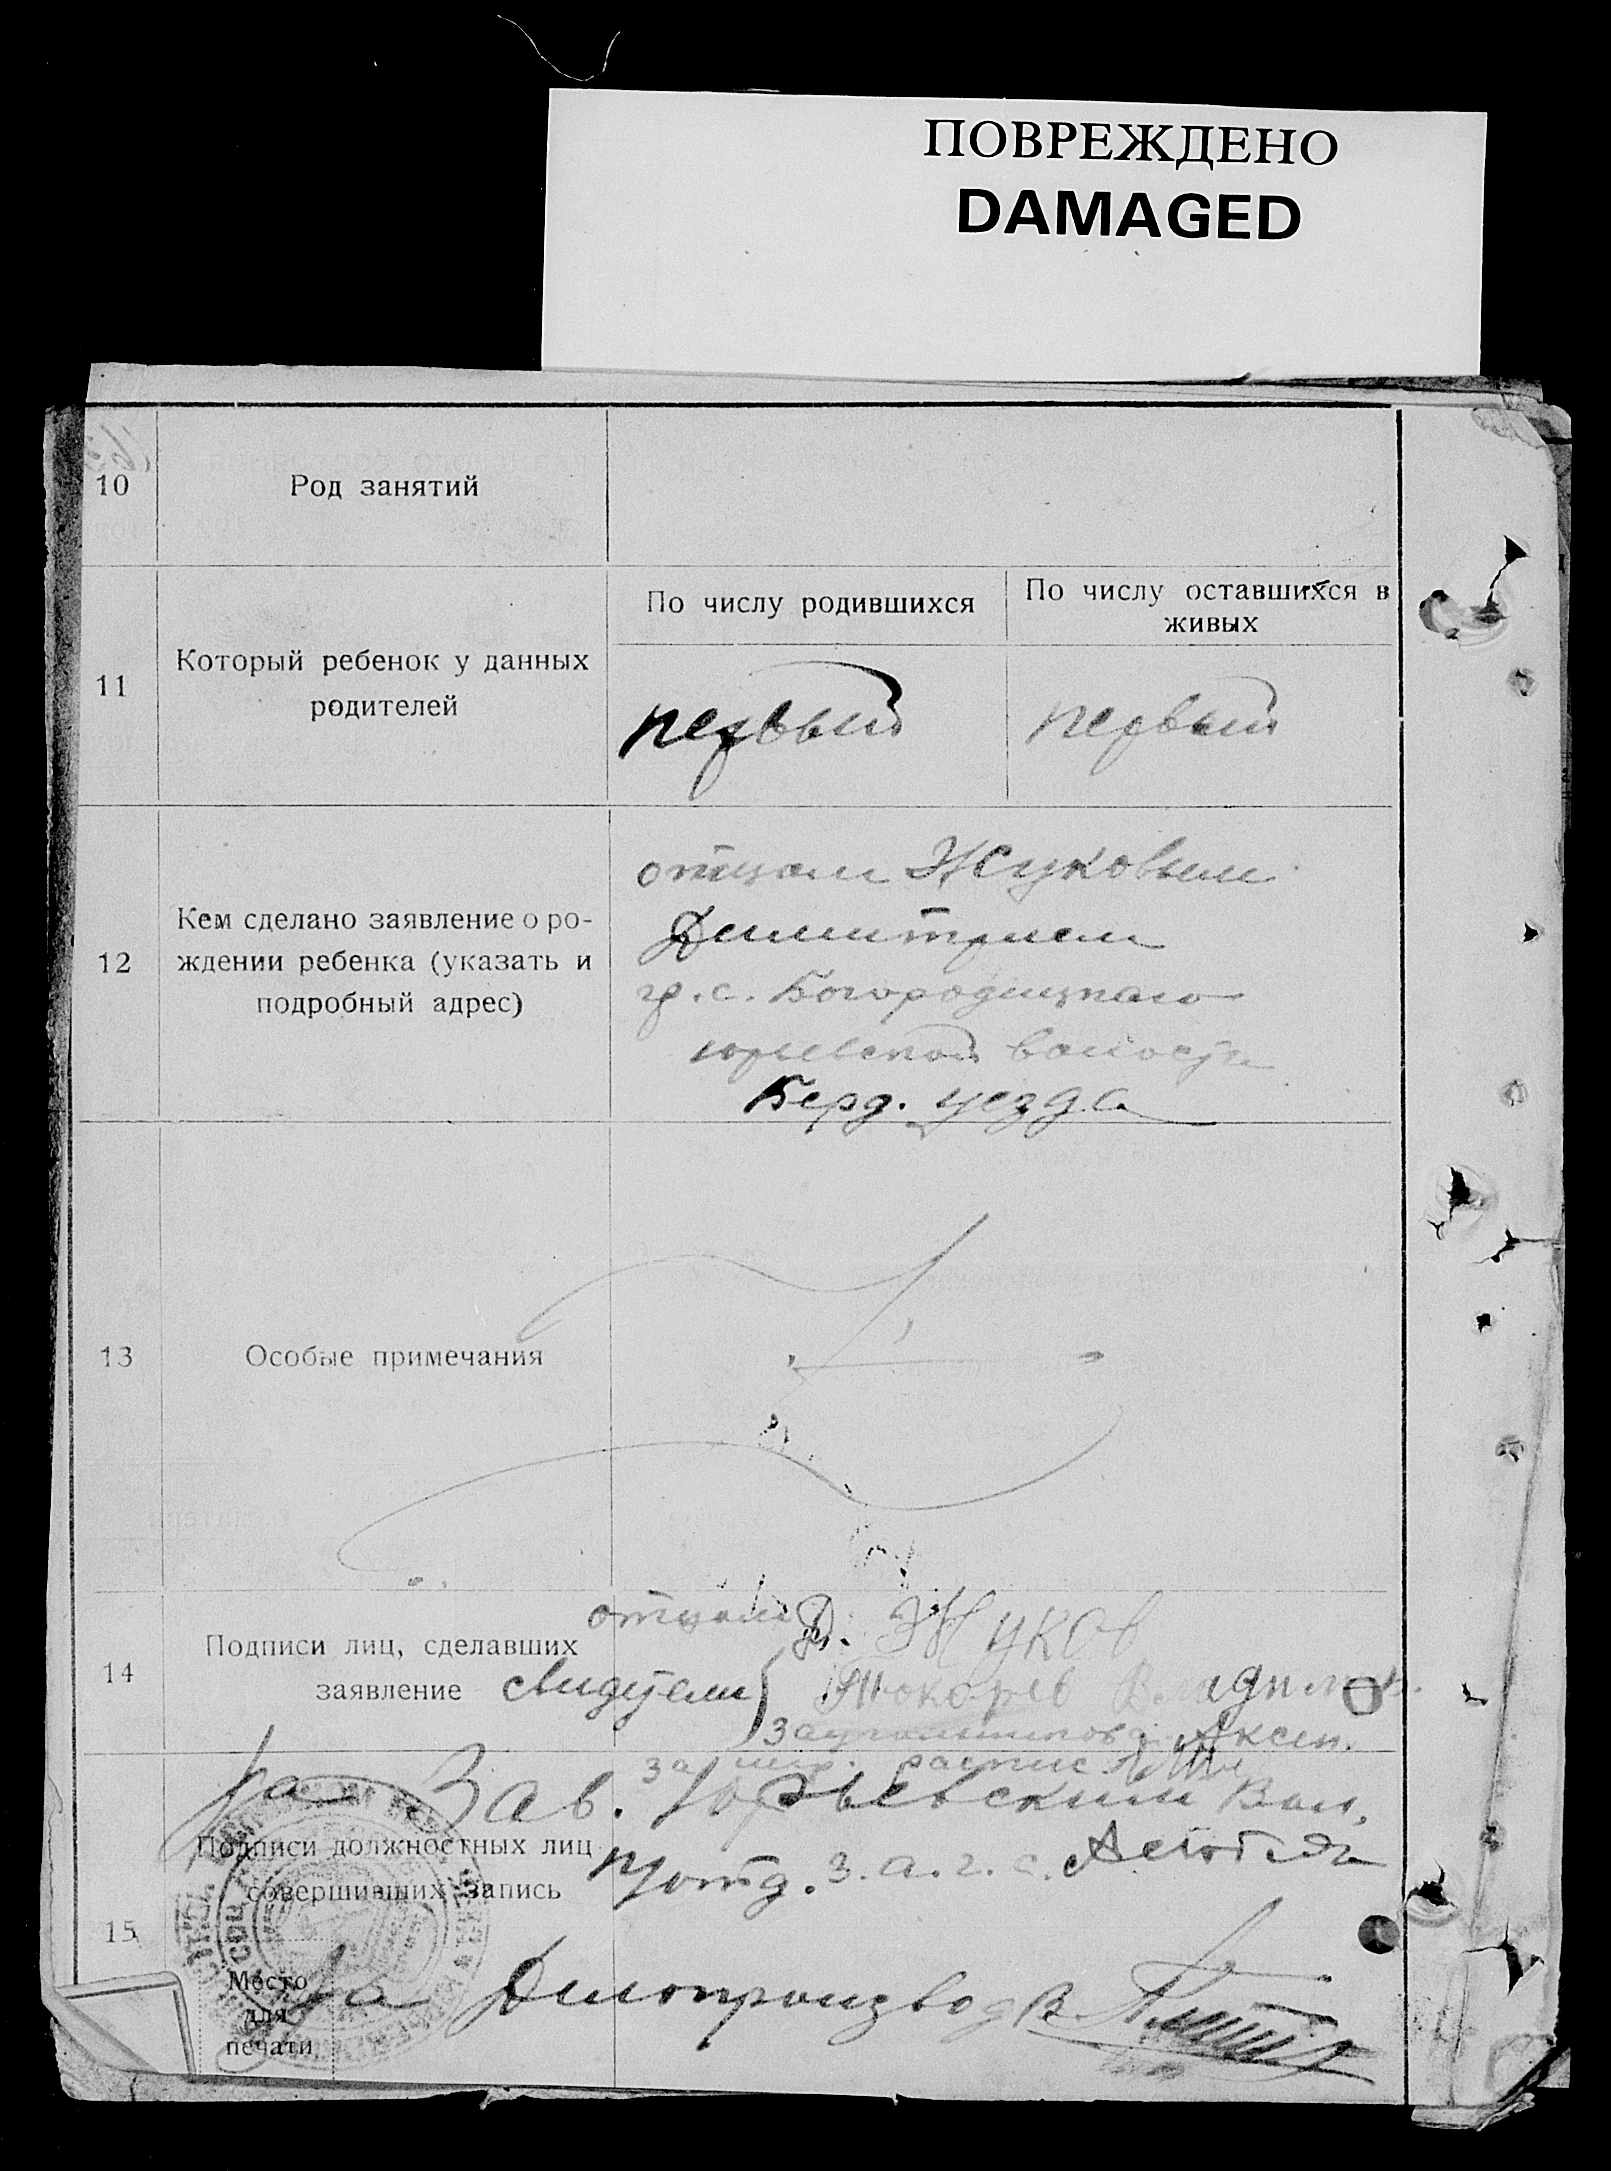 ПОВРЕЖДЕНО
DAMAGED
10
Род занятий
11
Который ребенок у данных
родителей
По числу родившихся
По числу оставшихся в
живых
первый
первый
12
Кем сделано заявление о ро-
ждении ребенка (указать и
подробный адрес)
отцом Жуковым
Димитрием
гр. с. Богородицкаго
Юрьевской волости
Берд. уезда
13
Особые примечания
14
Подписи лиц, сделавших
заявление
отцом Д. Жуков
Свидетели Токарев Владим
Аксен.
за распис
15
Подписи должностных лиц
совершивших запись
за Зав. Юрьевским Вол.
Потд. з. а. г. с.
Место
для
печати
за Делопроизвод